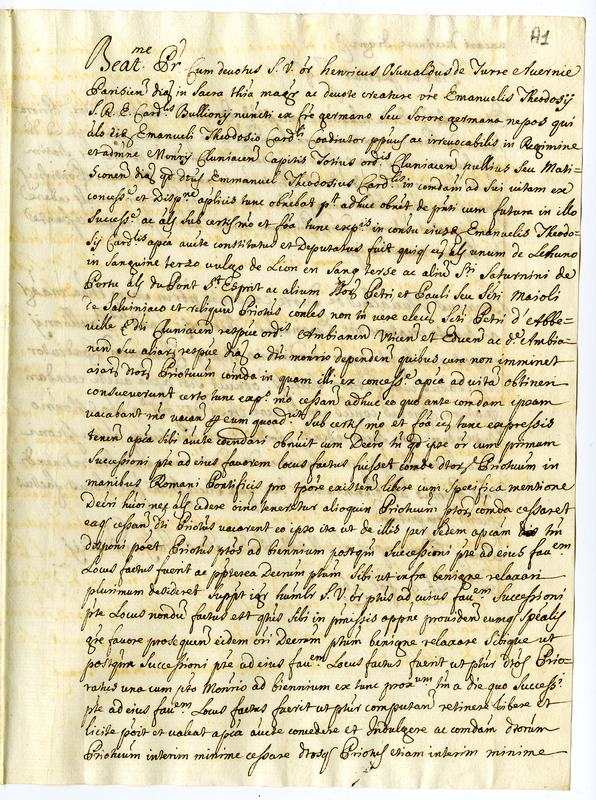 A1
Beat.me Pr Cum devotus S. V. or henricus Osuualdus de Turre Avernie
Parisien diæ in Sacra thia magr ac devote creature vre Emanuelis Theodosij
S. R. E. Card.lis Bullionij nuncti ex fre germano seu sorore germana nepos qui
alo dicto Emanueli Theodosio Card.li Coadiutor ppuus ac irrevocabilis in Regimine
et admne Monrij Cluniacen Capitis Totius ord.is Cluniacen nullius seu Mati-
sconen diæ qd dtus Emmanuel Theodosius Card.lis in comdam ad sui vitam ex
concess.e et disp.ne aplicis tunc obnebat pt adhuc obnet de pnti cum futura in illo
Success.e ac als sub certis mo et foa tunc exp.is in consu eiusd Emanuelis Theodo-
sij Card.lis apca aucte constitutus et Deputatus fuit quiq ex als unum de Lehuno
in Sanguine terzo vulgo de Lion en Sang terse ac aliud Sti Saturnini de
Portu als du Pont St Esprit ac alium Storum Petri et Pauli seu Scti Maioli
de Salviniaco et reliquum Priotus conles non tn vere elect Scti Petri d'Abbe-
ville Edti Cluniacen respue ord.is Ambianen Vticen et Eduen ac d.e Ambia-
nen seu aliar respue diæ a dto monrio dependen quibus cura non imminet
aiarum dtorum Priotuum comda in quam illi ex concess.e apca ad vitam obtineri
consueverunt certo tunc exp.o mo cessan adhuc eo quo ante comdam ipsam
vacabant mo vacan p eum quoad vixt sub certis mo et foa ets tunc expressis
tenen apca sibi aucte comdari obnuit cum Decro tn qd ipse or cum primum
Successioni pte ad eius favorem locus factus fuisset comde dtorum Priotuum in
manibus Romani Pontificis pro tpore existen libere cum specifica mentione
Decri huiori nes als cedere oino teneretur alioquin Priotuum ptorum comda cessaret
eaq cessan dti Priotus vacarent eo ipso ita ut de illis per sedem apcam tm
disponi posset Priotus ptos ad biennium postqm Successioni pte ad eius fav.em
Locus factus fuerit ac pptrea Decrum ptum sibi ut infra benigne relaxari
plurimum desideret Suppt igr humlr S. V. or ptus ad cuius fav.em Successioni
pte Locus nondum factus est qtus sibi in pmissis oppne providen eumq spealis
gre favore prosequen eidem ori Decrum ptum benigne relaxare Sibique ut
postqm Successioni pte ad eius fav.em Locus factus fuerit ut ptur dtos Prio-
ratus una cum pto Monrio ad biennium ex tunc prox.um tm a die quo success.i
pte ad eius fav.em Locus factus fuerit ut ptur computan retinere libere et
licite possit et valeat apca aucte concedere et Indulgere ac comdam dtorum
Priotuum interim minime cessare dtosq Priotus etiam interim minime